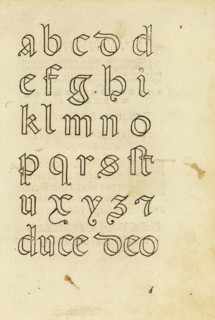 a b c d d
e f g h i
k l m n o
p q r s ſt
u x y z ꝰ
duce deo
d